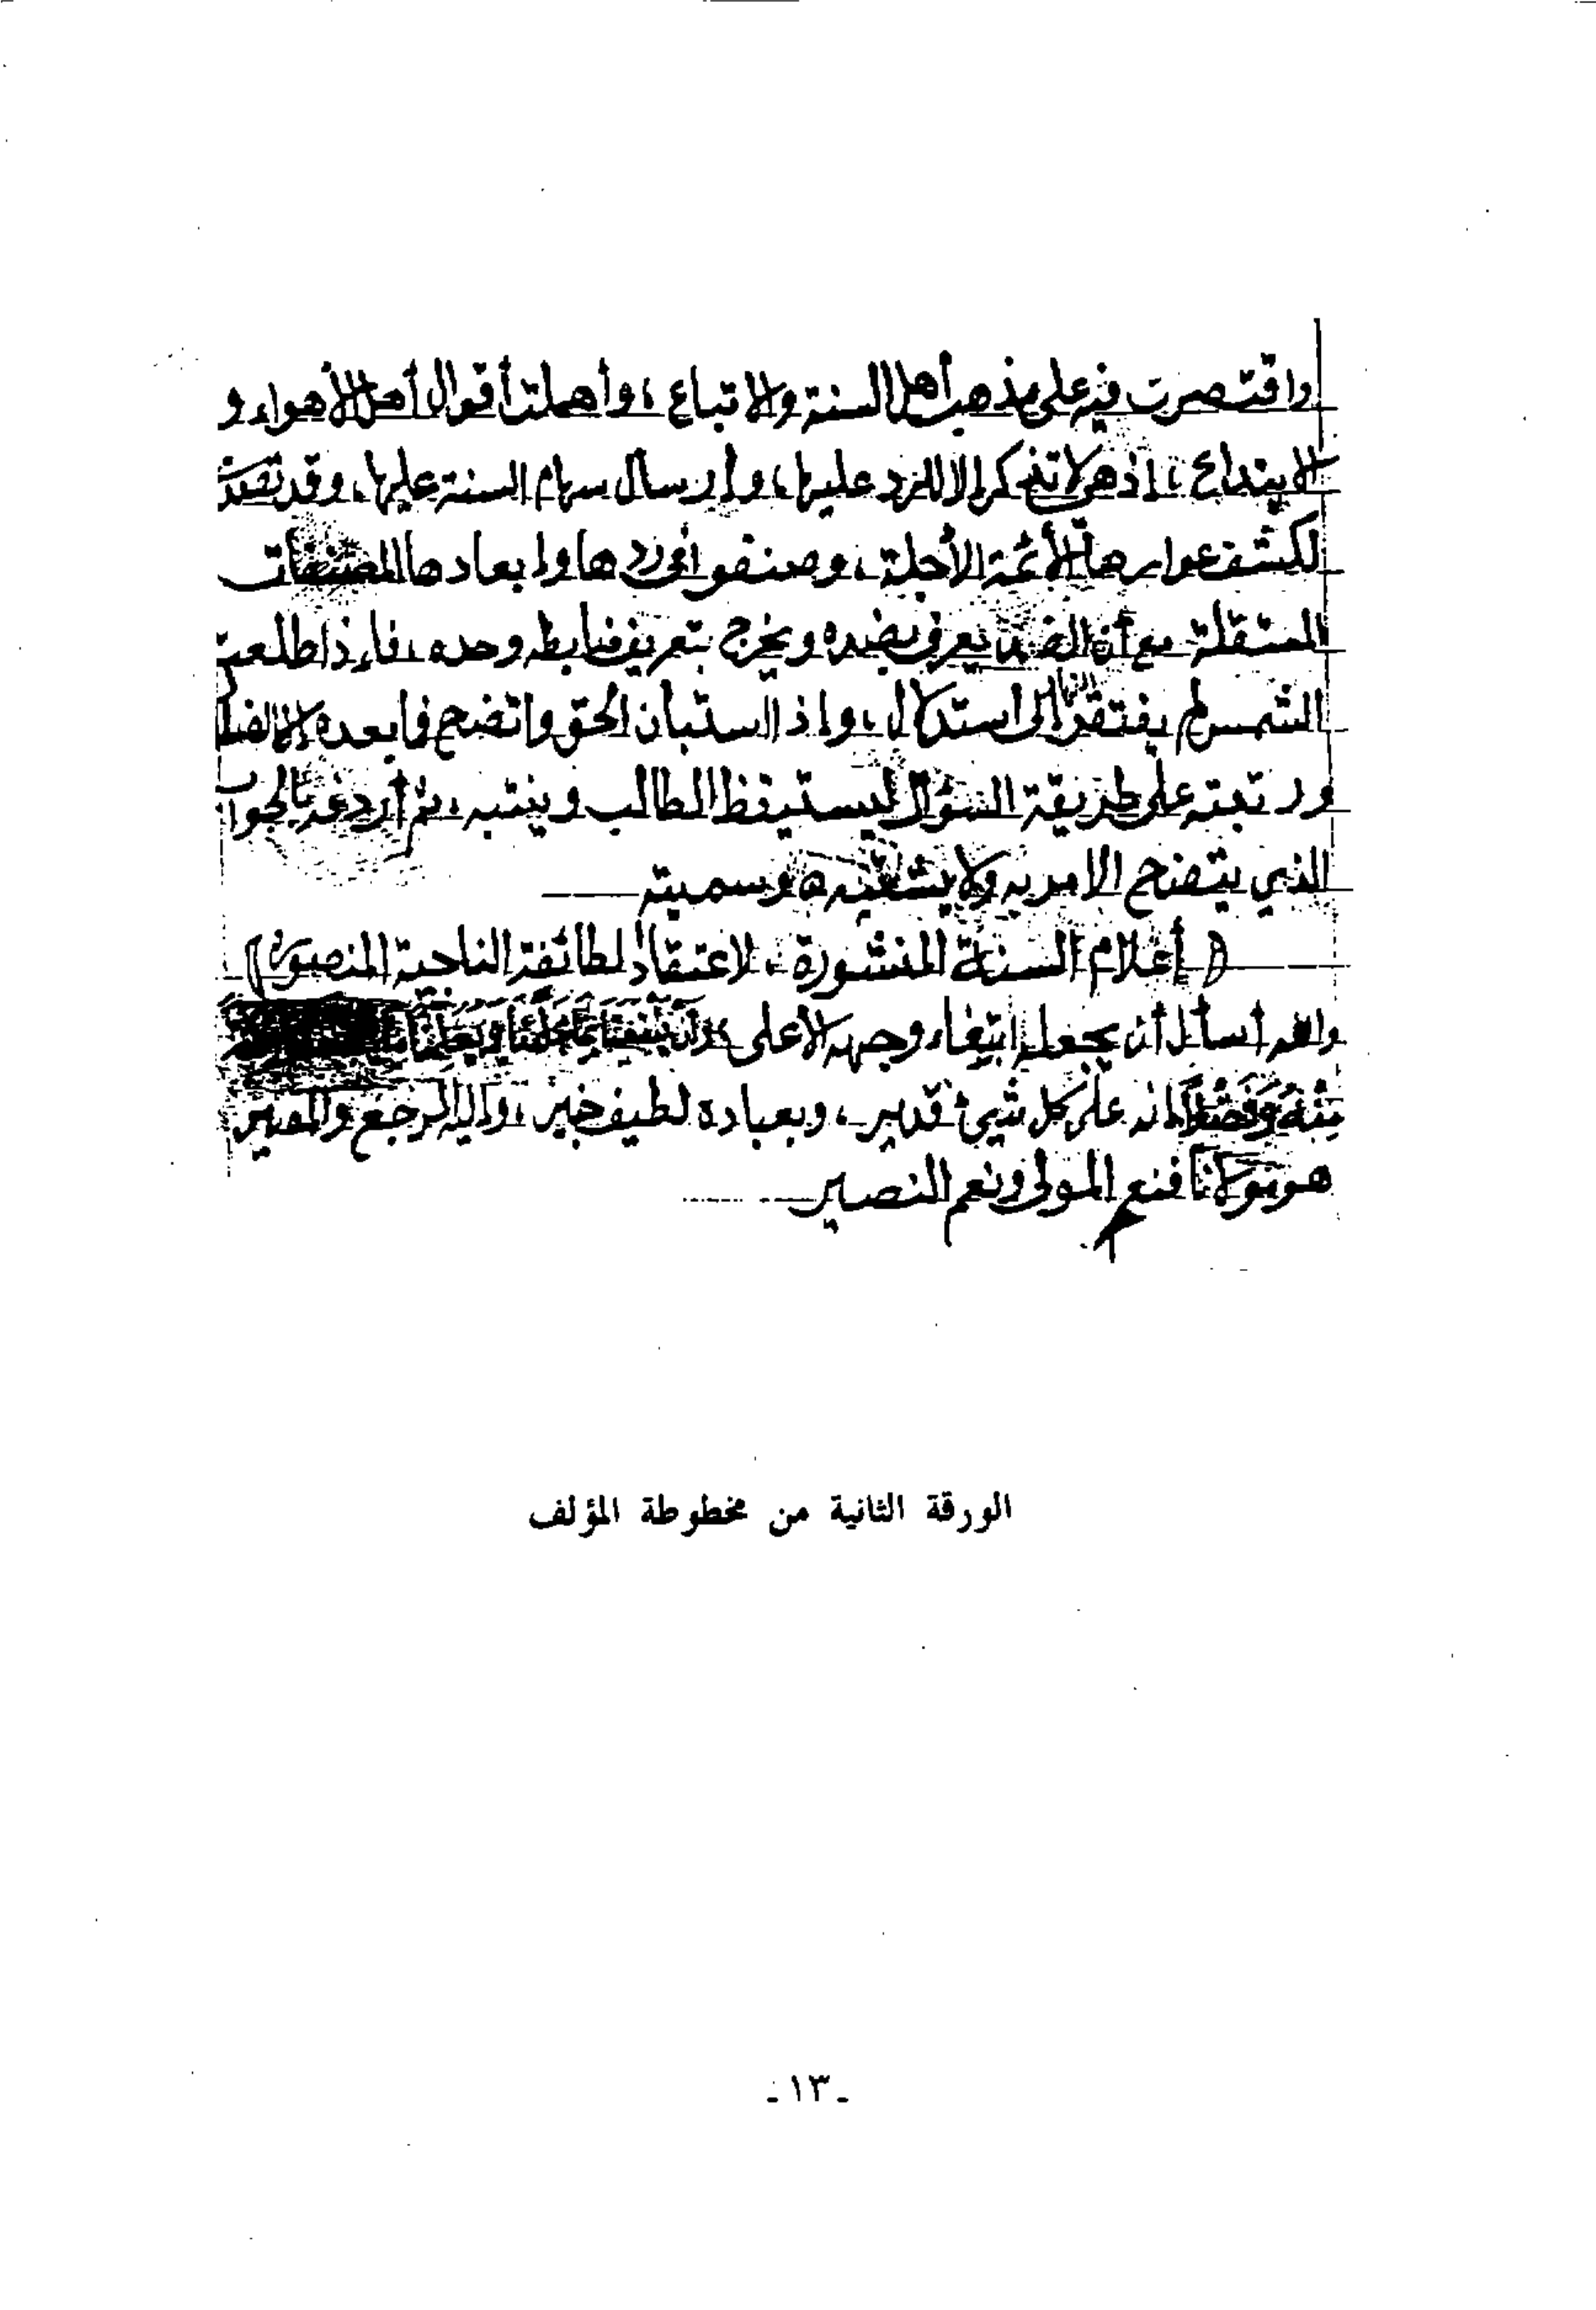 واقتصرت فيه على مذهب أهل السنة والاتباع ، وأهملت أقوال أهل الأهواء و
الابتداع ، إذ هي لا تذكر إلا للرد عليها ، وإرسال سهام السنة عليها ، وقد تصدى
لكشف عوارها الأئمة الأجلة ، وصنفوا في ردها وإبعادها المصنفات
المستقلة مع أن الضد يعرف بضده ويخرج بتعريف ضابطه وحده ، فإذا طلعت
الشمس لم يفتقر النهار إلى استدلال ، وإذا استبان الحق واتضح فما بعده إلا الضلال
ورتبته على طريقة السؤال ليستيقظ الطالب وينتبه ، ثم أردفه بالجواب
الذي يتضح الأمر به ولا يشتبه وسميته
( أعلام السنة المنشورة ، لاعتقاد الطائفة الناجية المنصورة )
والله أسأل أن يجعله ابتغاء وجهه الأعلى ، وأن ينفعنا بما علمنا ويعلمنا
إنه على كل شيئ قدير ، وبعباده لطيف خبير ، وإليه المرجع والمصير
هو مولانا فنعم المولى ونعم النصير
الورقة الثانية من مخطوطة المؤلف
ـ ١٣ ـ